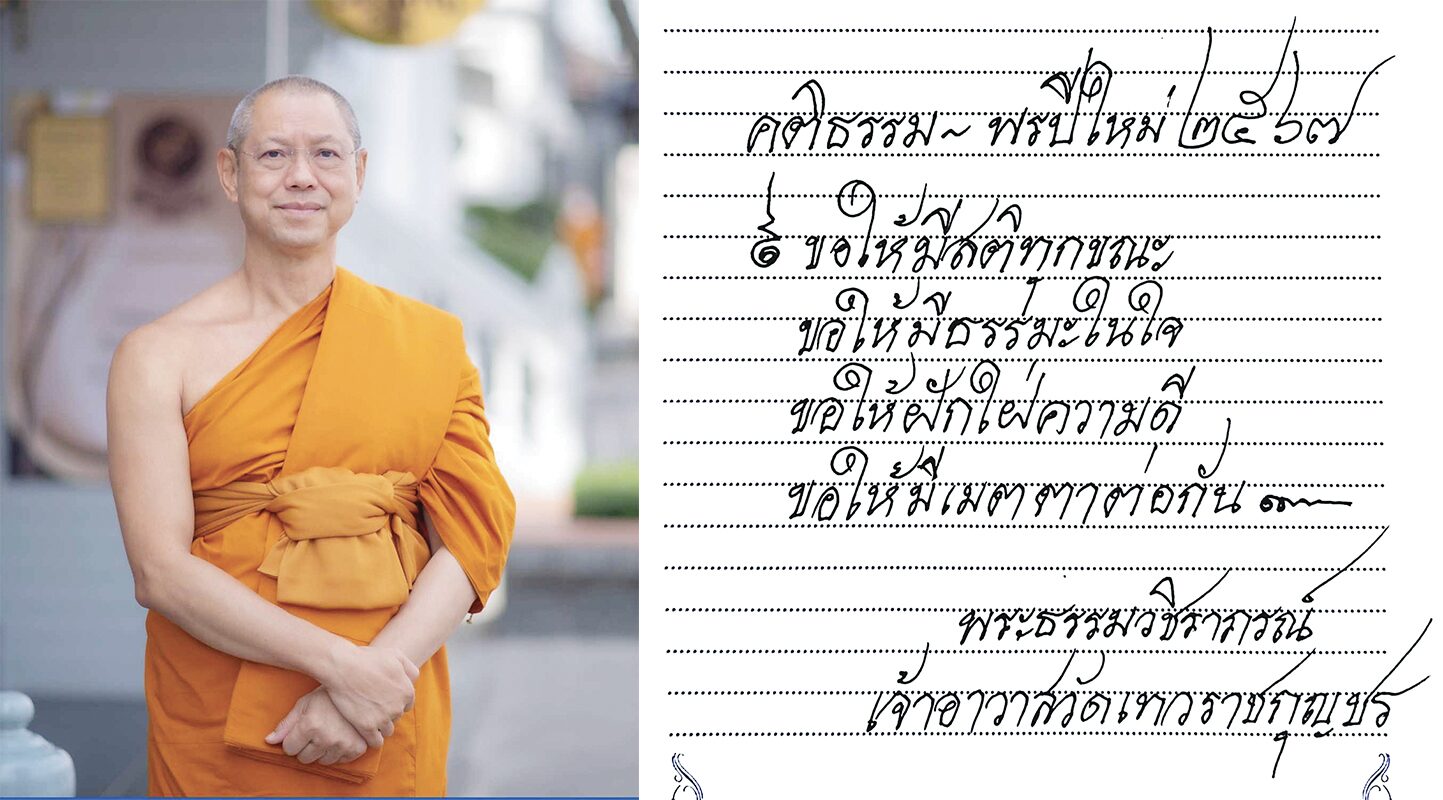 คติธรรม ~ พรปีใหม่ ๒๕๖๗
๏ ขอให้มีสติทุกขณะ
ขอให้มีธรรมะในใจ
ขอให้ฝักใฝ่ความดี
ขอให้มีเมตตาต่อกัน ๛
พระธรรมวชิราภรณ์
เจ้าอาวาสวัดเทวราชกุญชร